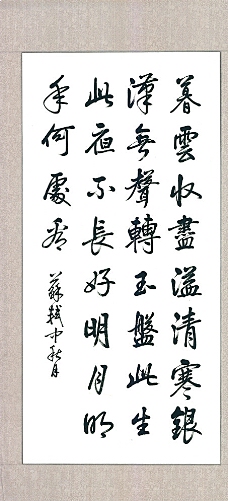 暮雲收盡溢清寒銀
漢無聲轉玉盤此生
此夜不長好明月明
年何處看
蘇軾中秋月